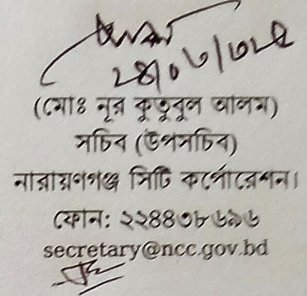 (মোঃ নূর কুতুবুল আলম)
সচিব (উপসচিব)
নারায়ণগঞ্জ সিটি কর্পোরেশন।
ফোন: ২২৪৪৩৮৬৯৬
secretary@ncc.gov.bd